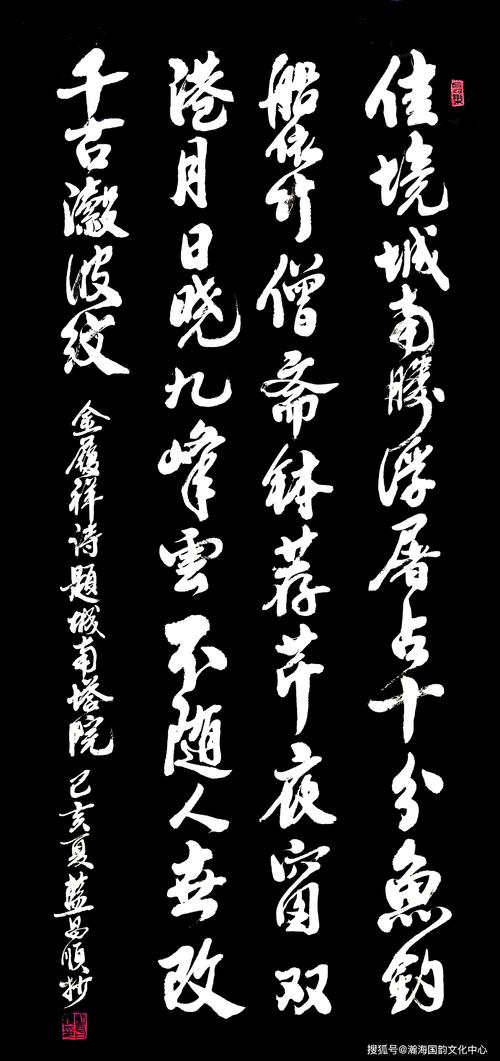 佳境城南勝浮屠占十分魚釣
船依竹僧斋鉢荐芹夜窗双
港月日晓九峰雲不随人世改
千古瀫波纹 金履祥诗題城南塔院 己亥夏藍昌順抄
搜狐号@瀚海国韵文化中心